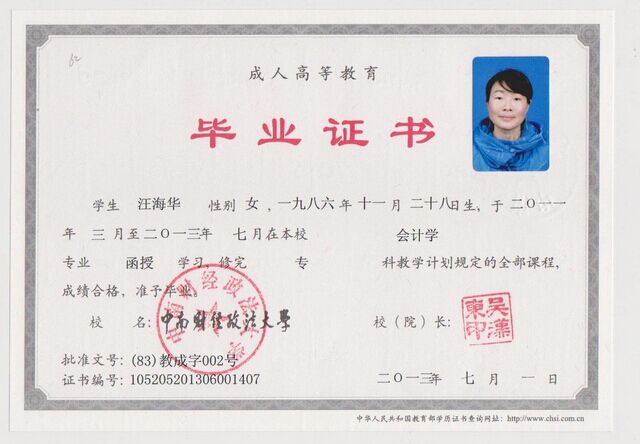 62
成人高等教育
毕业证书
学生 汪海华 性别 女，一九八六年 十一月 二十八日生，于二〇一一
年 三月至二〇一三年 七月在本校 会计学
专业 函授 学习，修完 专 科教学计划规定的全部课程，
成绩合格，准予毕业。
中南财经政法大学
校 名：中南财经政法大学 校（院）长：
吴汉東印
批准文号：(83)教成字002号
证书编号：105205201306001407 二〇一三年 七月 一日
中华人民共和国教育部学历证书查询网址：http://www.chsi.com.cn